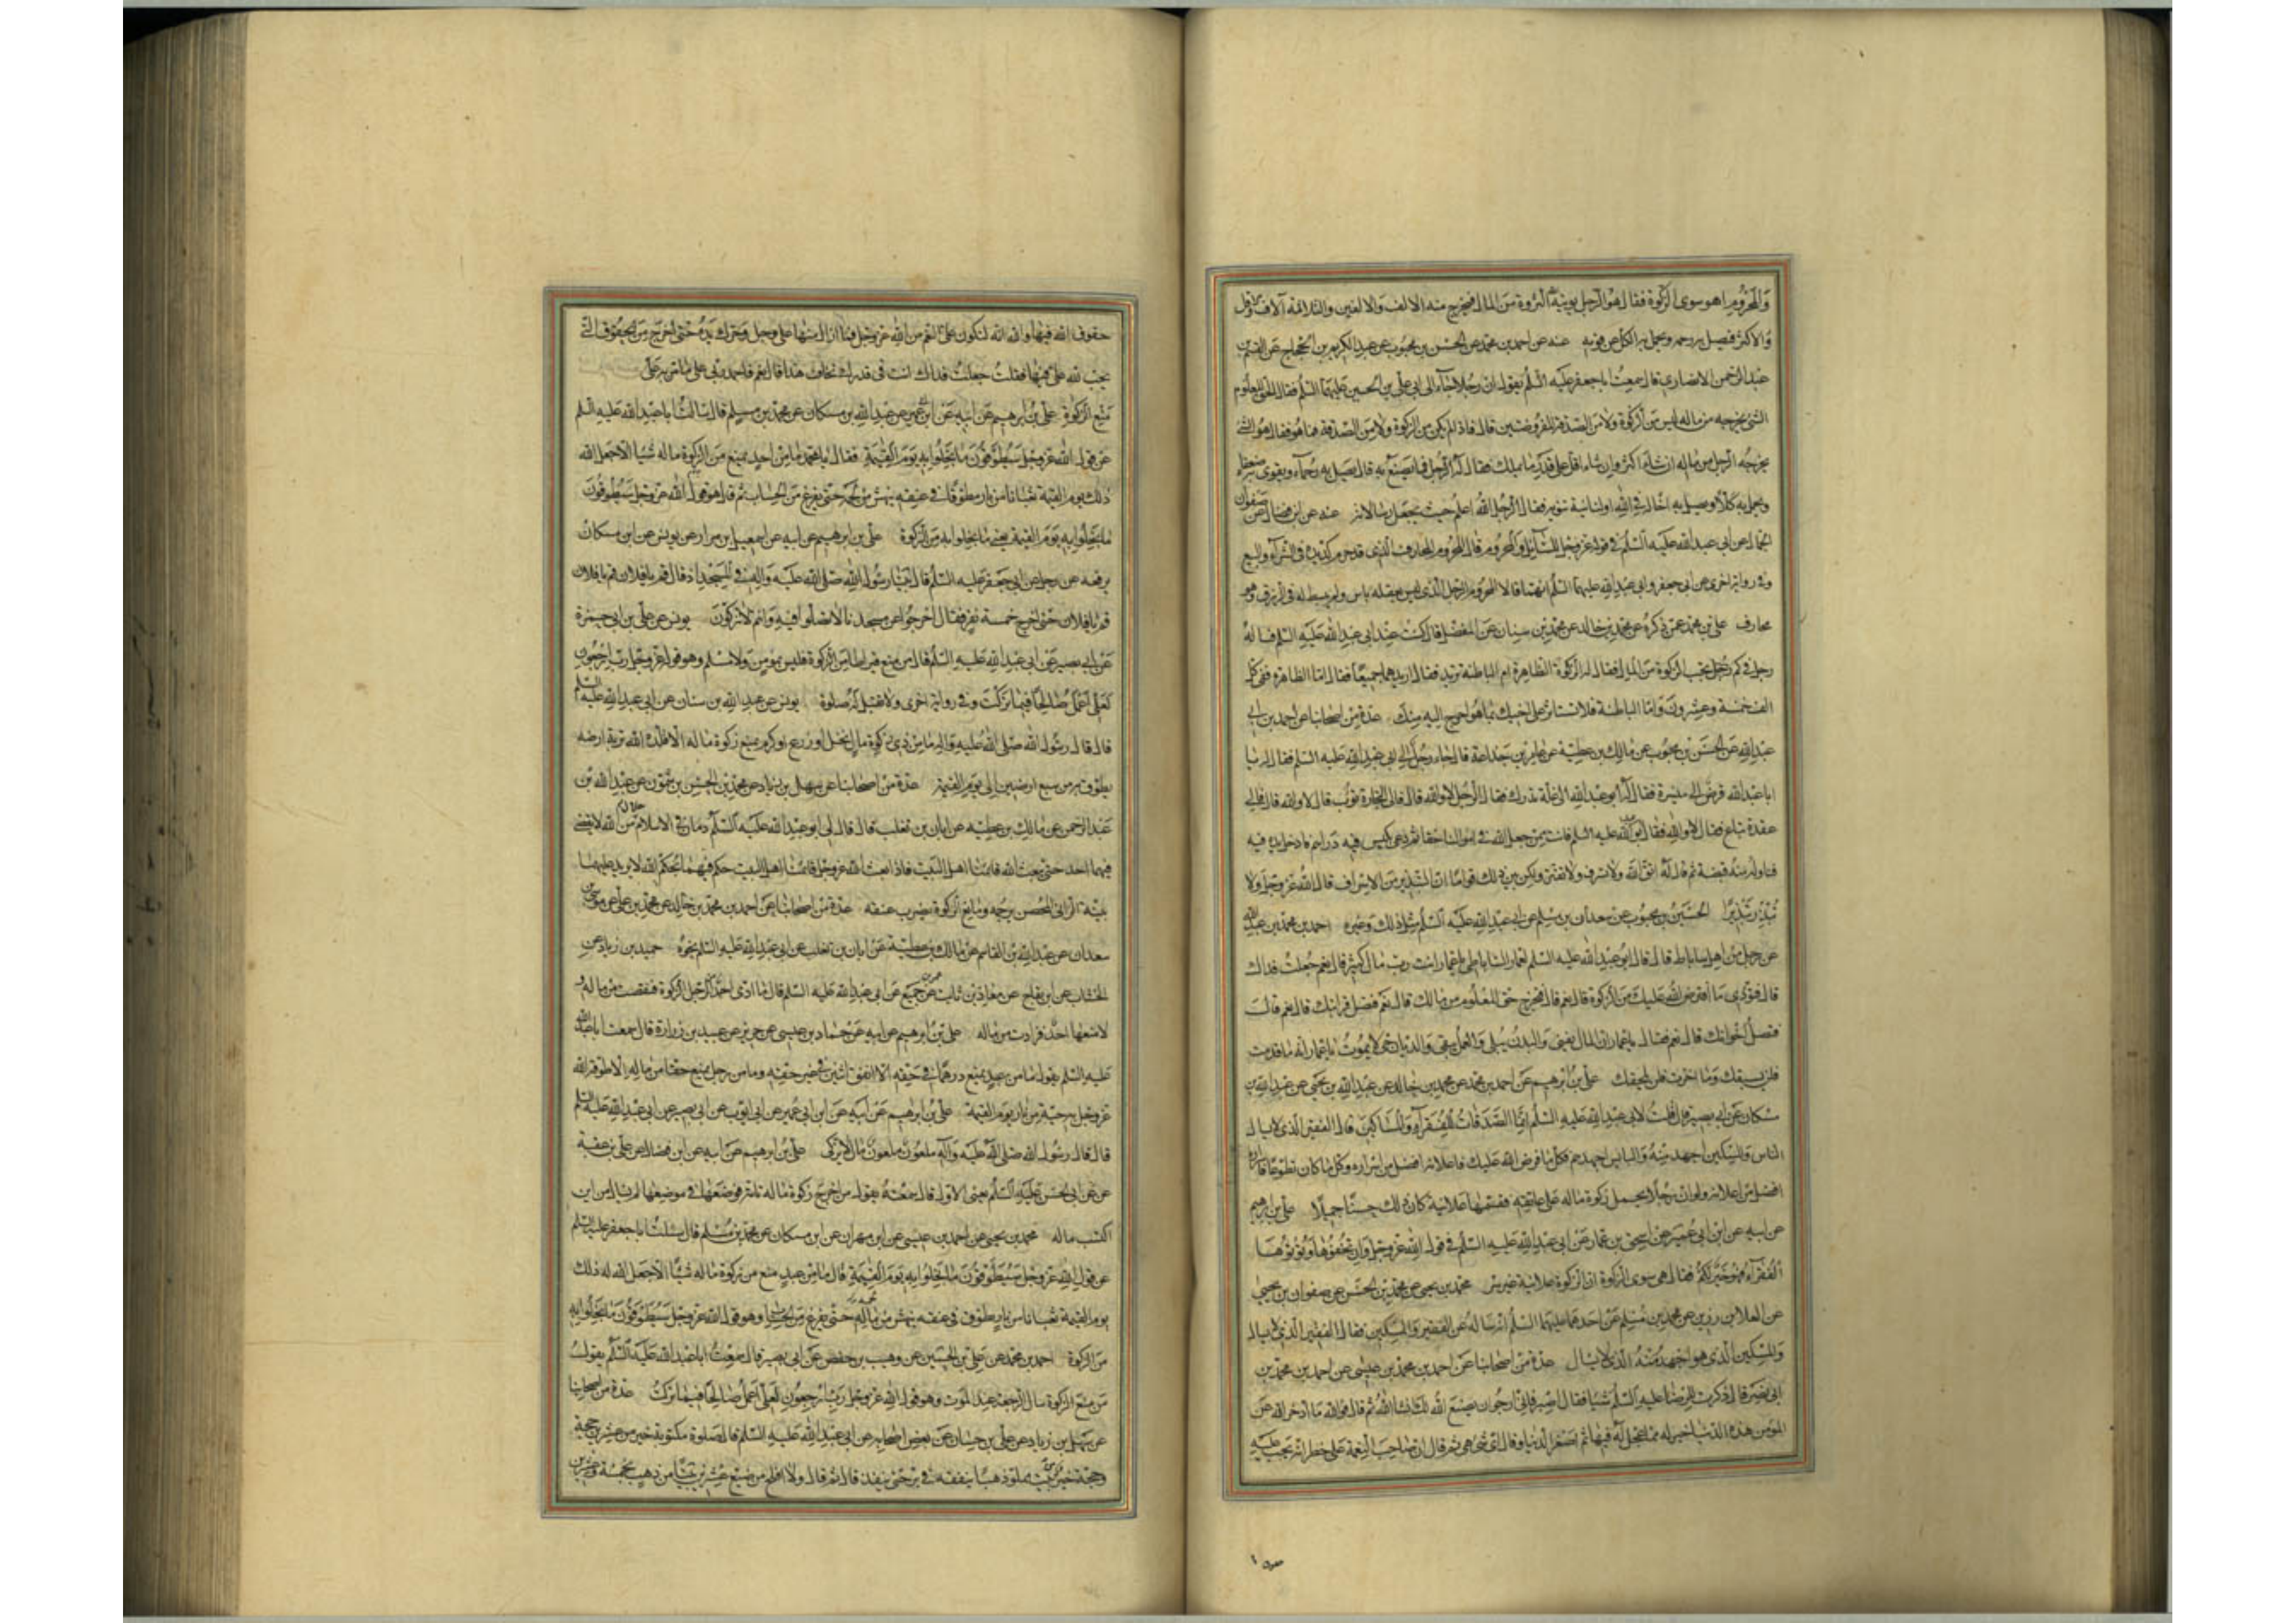 والمحروم ما هو سوى الزكوة فقال هو الرجل يؤتيه الله الثروة من المال فيخرج منه الالف والالفين والثلاثة آلاف والاقل
والاكثر فيصل به رحمه ويحمل به الكل عن قومه عنه عن احمد بن محمد عن الحسن بن محبوب عن عبد الكريم بن الحجاج عن القسم بن
عبد الرحمن الانصاري قال سمعت ابا جعفر عليه السلم يقول ان رجلا جاء الى ابي علي بن الحسين عليهما السلم فقال الحق المعلوم
الشئ يخرجه من ماله ليس من الزكوة ولا من الصدقة المفروضتين قال فاذا لم يكن من الزكوة ولا من الصدقة فما هو فقال هو الشئ
يخرجه الرجل من ماله ان شاء اكثر وان شاء اقل على قدر ما يملك فقال له الرجل فما يصنع به قال يصل به رحما ويقوي به ضعيفا
ويحمل به كلا او يصل به اخا له في الله او لنائبة تنوبه فقال الرجل الله اعلم حيث يجعل رسالاته عنه عن ابن فضال عن صفوان
الجمال عن ابي عبد الله عليه السلم في قوله عز وجل للسائل والمحروم قال المحروم المحارف الذي قد حرم كد يده في الشراء والبيع
وفي رواية اخرى عن ابي جعفر وابي عبد الله عليهما السلم انهما قالا المحروم الرجل الذي ليس بعقله باس ولم يبسط له في الرزق وهو
محارف علي بن محمد عمن ذكره عن محمد بن خالد عن محمد بن سنان عن المفضل قال كنت عند ابي عبد الله عليه السلم فساله
رجل في كم تجب الزكوة من المال فقال له الزكوة الظاهرة ام الباطنة تريد فقال اريدهما جميعا فقال اما الظاهرة ففي كل
الف خمسة وعشرون واما الباطنة فلا تستاثر على اخيك بما هو احوج اليه منك عدة من اصحابنا عن احمد بن ابي
عبد الله عن الحسن بن محبوب عن مالك بن عطية عن عامر بن جذاعة قال جاء رجل الى ابي عبد الله عليه السلم فقال له يا
ابا عبد الله قرض الى ميسرة فقال له ابو عبد الله الى غلة تدرك فقال الرجل لا والله قال فالى تجارة تؤب قال لا والله قال فالى
عقدة تباع فقال لا والله فقال ابو عبد الله عليه السلم فانت ممن جعل الله في اموالنا حقا ثم دعى بكيس فيه دراهم فادخل يده فيه
فناوله منه قبضة ثم قال له اتق الله ولا تسرف ولا تقتر ولكن بين ذلك قواما ان التبذير من الاسراف قال الله عز وجل ولا
تبذر تبذيرا الحسين بن محبوب عن سعدان بن مسلم عن ابي عبد الله عليه السلم مثل ذلك وغيره احمد بن محمد بن عبد الله
عن رجل من اهل ساباط قال قال ابو عبد الله عليه السلم لعمار الساباطي يا عمار انت رب مال كثير قال نعم جعلت فداك
قال فتؤدي ما افترض الله عليك من الزكوة قال نعم قال فتخرج حق المعلوم من مالك قال نعم قال فتصل قرابتك قال نعم قال
فتصل اخوانك قال نعم فقال يا عمار ان المال يفنى والبدن يبلى والعمل يبقى والديان حي لا يموت يا عمار انه ما قدمت
فلن يسبقك وما اخرت فلن يلحقك علي بن ابرهيم عن احمد بن محمد عن محمد بن خالد عن عبد الله بن يحيى عن عبد الله بن
مسكان عن ابي بصير قال قلت لابي عبد الله عليه السلم انما الصدقات للفقراء والمساكين قال الفقير الذي لا يسال
الناس والمسكين اجهد منه والبايس اجهدهم فكل ما فرض الله عليك فاعلانه افضل من اسراره وكل ما كان تطوعا فاسراره
افضل من اعلانه ولو ان رجلا يحمل زكوة ماله على عاتقه فقسمها علانية كان ذلك حسنا جميلا علي بن ابرهيم
عن ابيه عن ابن ابي عمير عن اسحق بن عمار عن ابي عبد الله عليه السلم في قول الله عز وجل وان تخفوها وتؤتوها
الفقراء فهو خير لكم فقال هي سوى الزكوة ان الزكوة علانية غير سر محمد بن يحيى عن محمد بن الحسن عن صفوان بن يحيى
عن العلا بن رزين عن محمد بن مسلم عن احدهما عليهما السلم انه ساله عن الفقير والمسكين فقال الفقير الذي لا يسال
والمسكين الذي هو اجهد منه الذي لا يسال عدة من اصحابنا عن احمد بن محمد بن عيسى عن احمد بن محمد بن
ابي نصر قال ذكرت للرضا عليه السلم شيئا فقال اصبر فاني ارجو ان يصنع الله لك ان شاء الله ثم قال فوالله ما ادخر الله عن
المؤمن هذه الدنيا خير له مما عجل له فيها ثم صغر الدنيا وقال اي شئ هي ثم قال ان صاحب النعمة على خطر انه يجب عليه
حقوق الله فيها والله انه لتكون علي النعم من الله عز وجل فما ازال منها على وجل وحرك يده حتى اخرج من الحقوق التي
تجب لله علي فيها فقلت جعلت فداك انت في قدرك تخاف هذا قال نعم فاحمد ربي على ما من به علي
منع الزكوة علي بن ابرهيم عن ابيه عن ابن ابي عمير عن عبد الله بن مسكان عن محمد بن مسلم قال سالت ابا عبد الله عليه السلم
عن قول الله عز وجل سيطوقون ما بخلوا به يوم القيمة فقال يا محمد ما من احد يمنع من الزكوة ماله شيئا الا جعل الله
ذلك يوم القيمة ثعبانا من نار مطوقا في عنقه ينهش من لحمه حتى يفرغ من الحساب ثم قال هو قول الله عز وجل سيطوقون
ما بخلوا به يوم القيمة يعني ما بخلوا به من الزكوة علي بن ابرهيم عن ابيه عن اسمعيل بن مرار عن يونس عن ابن مسكان
يرفعه عن رجل عن ابي جعفر عليه السلم قال بينا رسول الله صلى الله عليه واله في المسجد اذ قال قم يا فلان قم يا فلان
قم يا فلان حتى اخرج خمسة نفر فقال اخرجوا من مسجدنا لا تصلوا فيه وانتم لا تزكون يونس عن علي بن ابي حمزة
عن ابي بصير عن ابي عبد الله عليه السلم قال من منع قيراطا من الزكوة فليس بمؤمن ولا مسلم وهو قوله عز وجل رب ارجعون
لعلي اعمل صالحا فيما تركت وفي رواية اخرى ولا تقبل له صلوة يونس عن عبد الله بن سنان عن ابي عبد الله عليه السلم
قال قال رسول الله صلى الله عليه واله ما من ذي زكوة مال نخل او زرع او كرم يمنع زكوة ماله الا قلده الله تربة ارضه
يطوق به من سبع ارضين الى يوم القيمة عدة من اصحابنا عن سهل بن زياد عن محمد بن الحسن بن شمون عن عبد الله بن
عبد الرحمن عن مالك بن عطيه عن ابان بن تغلب قال قال لي ابو عبد الله عليه السلم دمان في الاسلام حلال من الله لا يقضي
فيهما احد حتى يبعث الله قائمنا اهل البيت فاذا بعث الله عز وجل قائمنا اهل البيت حكم فيهما بحكم الله لا يريد عليهما
بينة الزاني المحصن يرجمه ومانع الزكوة يضرب عنقه عدة من اصحابنا عن احمد بن محمد بن خالد عن محمد بن علي عن موسى بن
سعدان عن عبد الله بن القاسم عن مالك بن عطية عن ابان بن تغلب عن ابي عبد الله عليه السلم نحوه حميد بن زياد عن
الخشاب عن ابن بقاح عن معاذ بن ثابت عن عمرو بن جميع عن ابي عبد الله عليه السلم قال ما ادى احد الزكوة فنقصت من ماله و
لا منعها احد فزادت من ماله علي بن ابرهيم عن ابيه عن حماد بن عيسى عن حريز عن عبيد بن زرارة قال سمعت ابا عبد الله
عليه السلم يقول ما من عبد يمنع درهما في حقه الا انفق اثنين في غير حقه وما من رجل يمنع حقا من ماله الا طوقه الله
عز وجل به حية من نار يوم القيمة علي بن ابرهيم عن ابيه عن ابن ابي عمير عن ابي ايوب عن ابي بصير عن ابي عبد الله عليه السلم
قال قال رسول الله صلى الله عليه وآله ملعون ملعون مال لا يزكى علي بن ابرهيم عن ابيه عن ابن فضال عن علي بن عقبة
عن ابي الحسن عليه السلم يعني الاول قال سمعته يقول من اخرج زكوة ماله تامة فوضعها في موضعها لم يسال من اين
اكتسب ماله محمد بن يحيى عن احمد بن عيسى عن ابن مهران عن ابن مسكان عن محمد بن مسلم قال سئلت ابا جعفر عليه السلم
عن قول الله عز وجل سيطوقون ما بخلوا به يوم القيمة قال ما من عبد منع من زكوة ماله شيئا الا جعل الله له ذلك
يوم القيمة ثعبانا من نار يطوق في عنقه ينهش من لحمه حتى يفرغ من الحساب وهو قول الله عز وجل سيطوقون ما بخلوا به
من الزكوة احمد بن محمد عن علي بن الحسين عن وهيب بن حفص عن ابي بصير قال سمعت ابا عبد الله عليه السلم يقول
من منع الزكوة سال الرجعة عند الموت وهو قول الله عز وجل رب ارجعون لعلي اعمل صالحا فيما تركت عدة من اصحابنا
عن سهل بن زياد عن علي بن حسان عن بعض اصحابه عن ابي عبد الله عليه السلم قال صلوة مكتوبة خير من عشرين حجة
وحجة خير من بيت مملو ذهبا ينفقه في بر حتى ينفد قال ثم قال ولا افلح من ضيع عشرين بيتا من ذهب بخمسة وعشرين